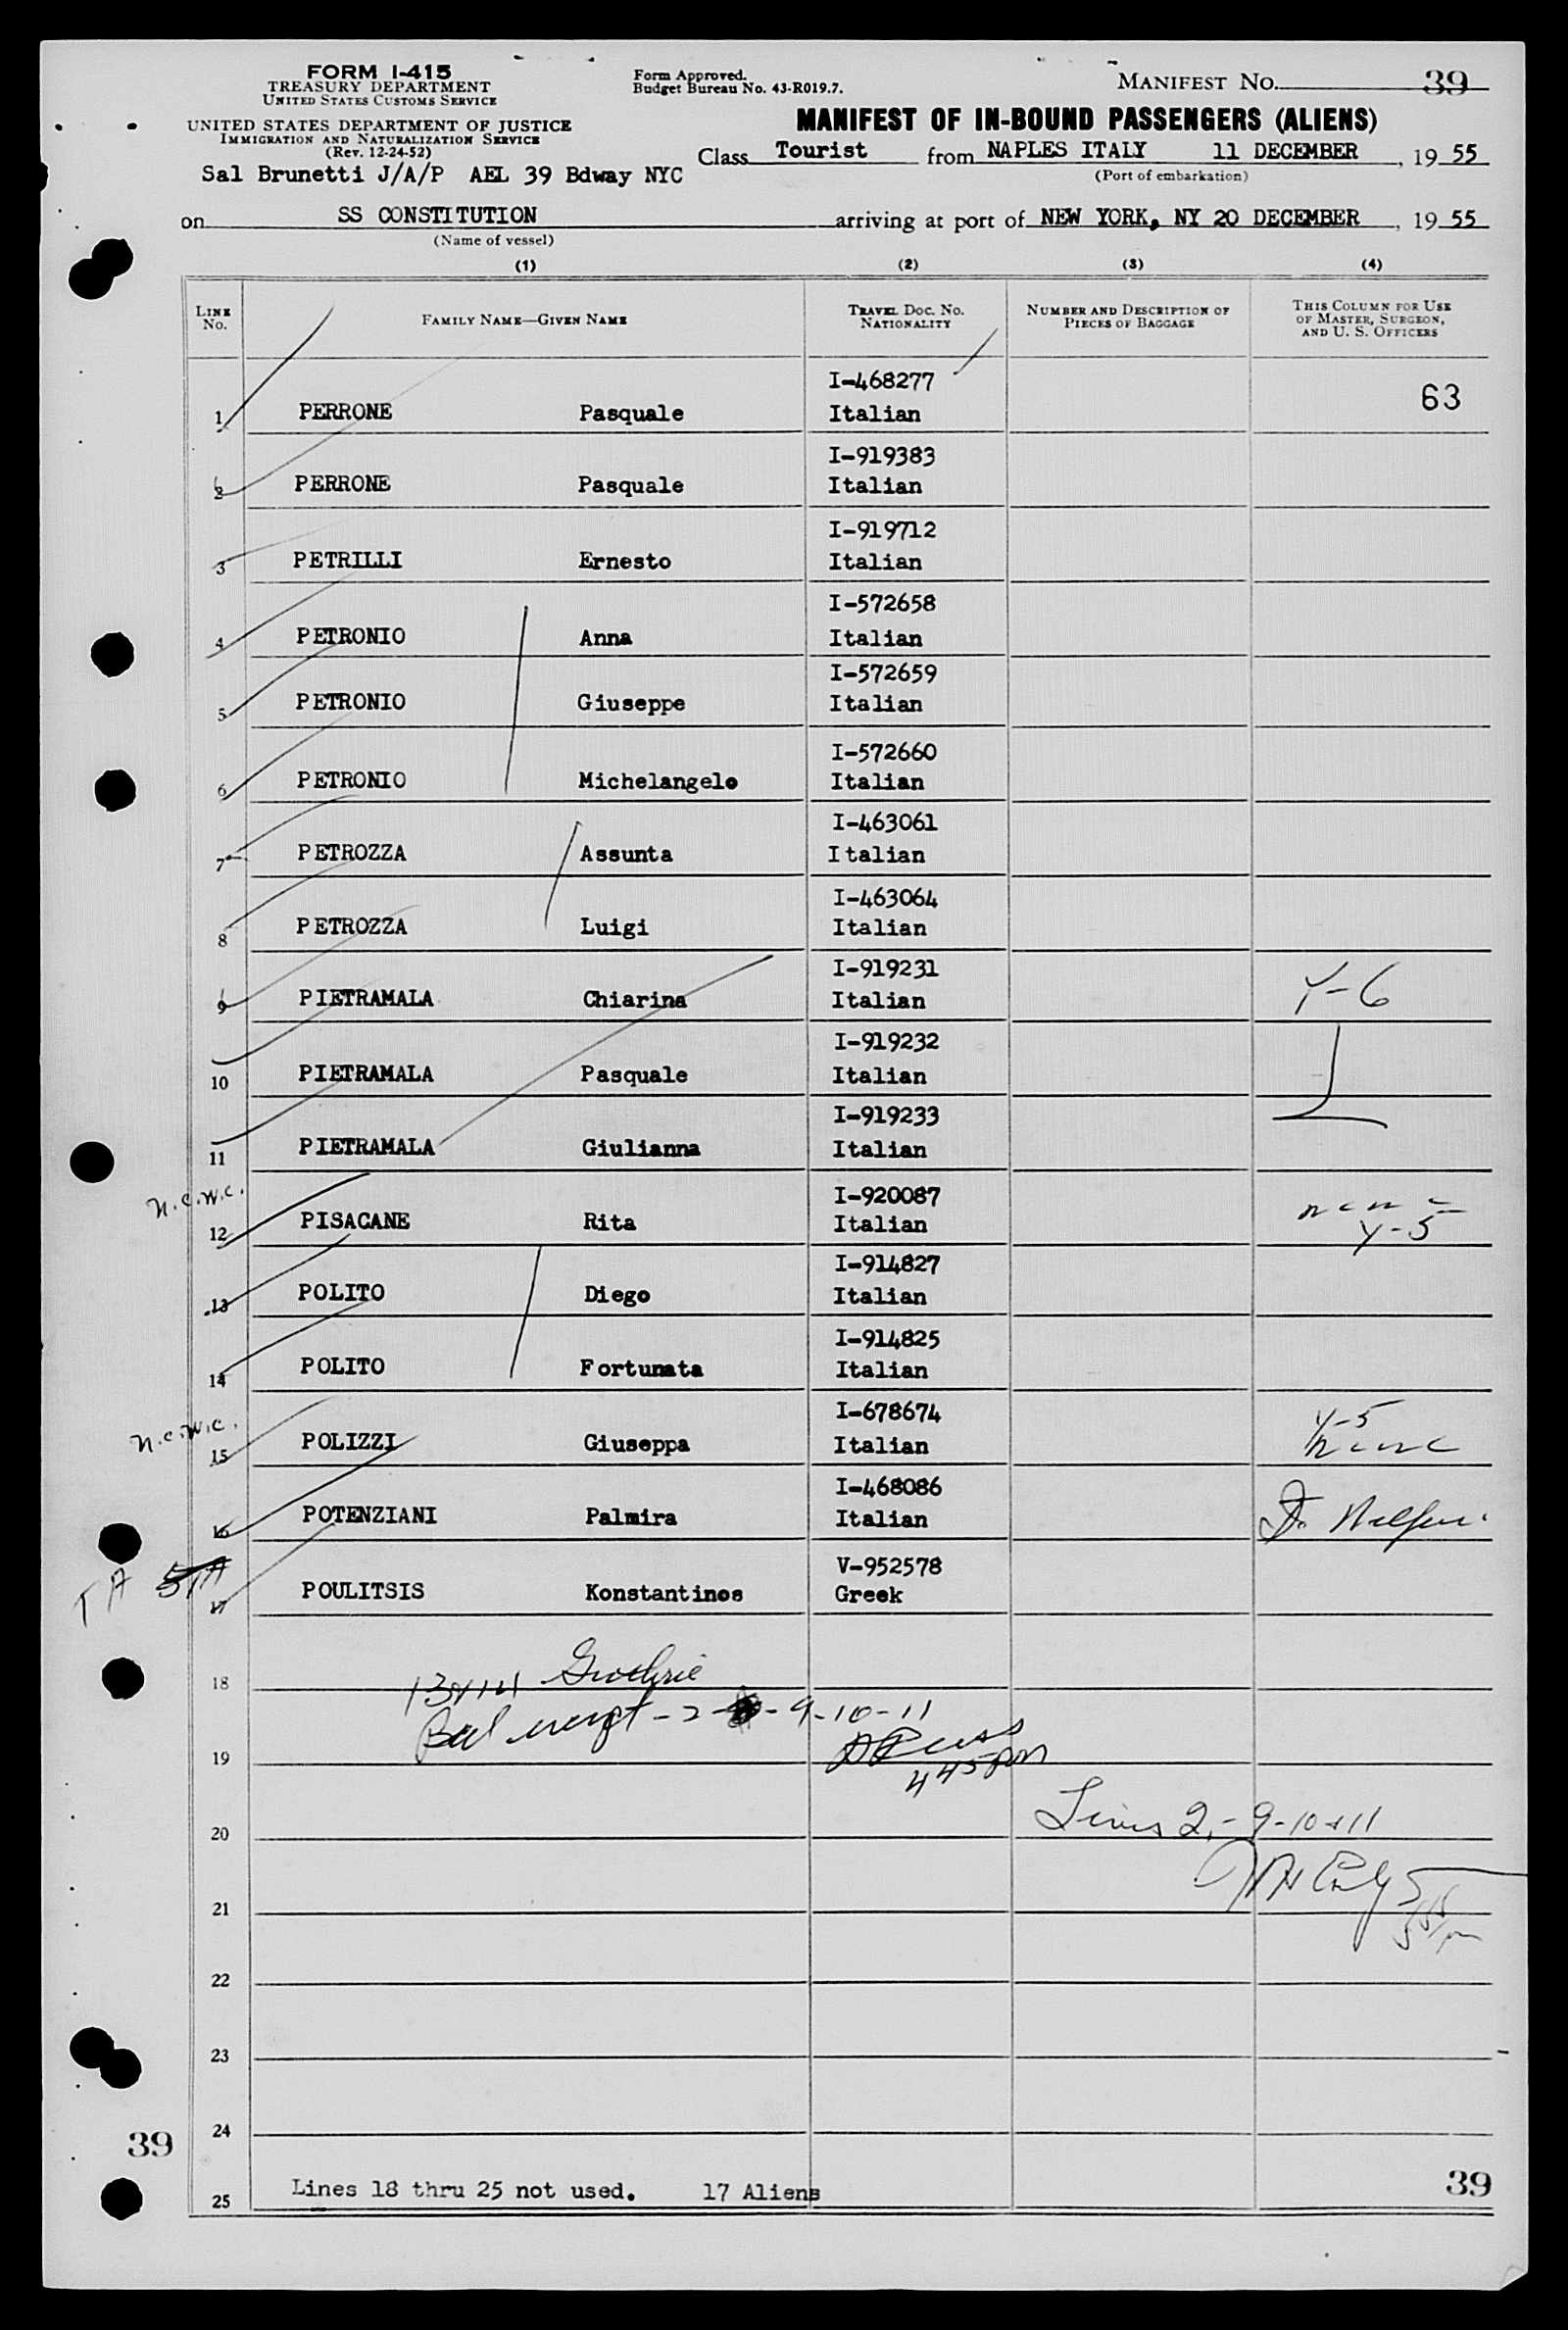 FORM I-415
TREASURY DEPARTMENT
UNITED STATES CUSTOMS SERVICE
UNITED STATES DEPARTMENT OF JUSTICE
IMMIGRATION AND NATURALIZATION SERVICE
(Rev. 12-24-52)
Form Approved.
Budget Bureau No. 43-R019.7.
MANIFEST NO. 39
MANIFEST OF IN-BOUND PASSENGERS (ALIENS)
Sal Brunetti J/A/P AEL 39 Bdway NYC
Class Tourist from NAPLES ITALY 11 DECEMBER, 19 55
(Port of embarkation)
on SS CONSTITUTION arriving at port of NEW YORK, NY 20 DECEMBER, 19 55
(Name of vessel)
(1) (2) (3) (4)
LINE NO. FAMILY NAME—GIVEN NAME TRAVEL DOC. NO. NATIONALITY NUMBER AND DESCRIPTION OF PIECES OF BAGGAGE THIS COLUMN FOR USE OF MASTER, SURGEON, AND U. S. OFFICERS
I-468277
1 PERRONE Pasquale Italian 63
I-919383
2 PERRONE Pasquale Italian
I-919712
3 PETRILLI Ernesto Italian
I-572658
4 PETRONIO Anna Italian
I-572659
5 PETRONIO Giuseppe Italian
I-572660
6 PETRONIO Michelangelo Italian
I-463061
7 PETROZZA Assunta Italian
I-463064
8 PETROZZA Luigi Italian
I-919231
9 PIETRAMALA Chiarina Italian Y-6
I-919232
10 PIETRAMALA Pasquale Italian
I-919233
11 PIETRAMALA Giulianna Italian
n.c.w.c. I-920087
12 PISACANE Rita Italian Y-5
I-914827
13 POLITO Diego Italian
I-914825
14 POLITO Fortunata Italian
n.c.w.c. I-678674 Y-5
15 POLIZZI Giuseppa Italian
I-468086
16 POTENZIANI Palmira Italian
TA V-952578
17 POULITSIS Konstantinos Greek
18 13 & 14 Guthrie
Bal except - 2 - 9-10-11
19 445 pm
20 Lines 2, - 9-10 & 11
21
22
23
24
39
25 Lines 18 thru 25 not used. 17 Aliens 39